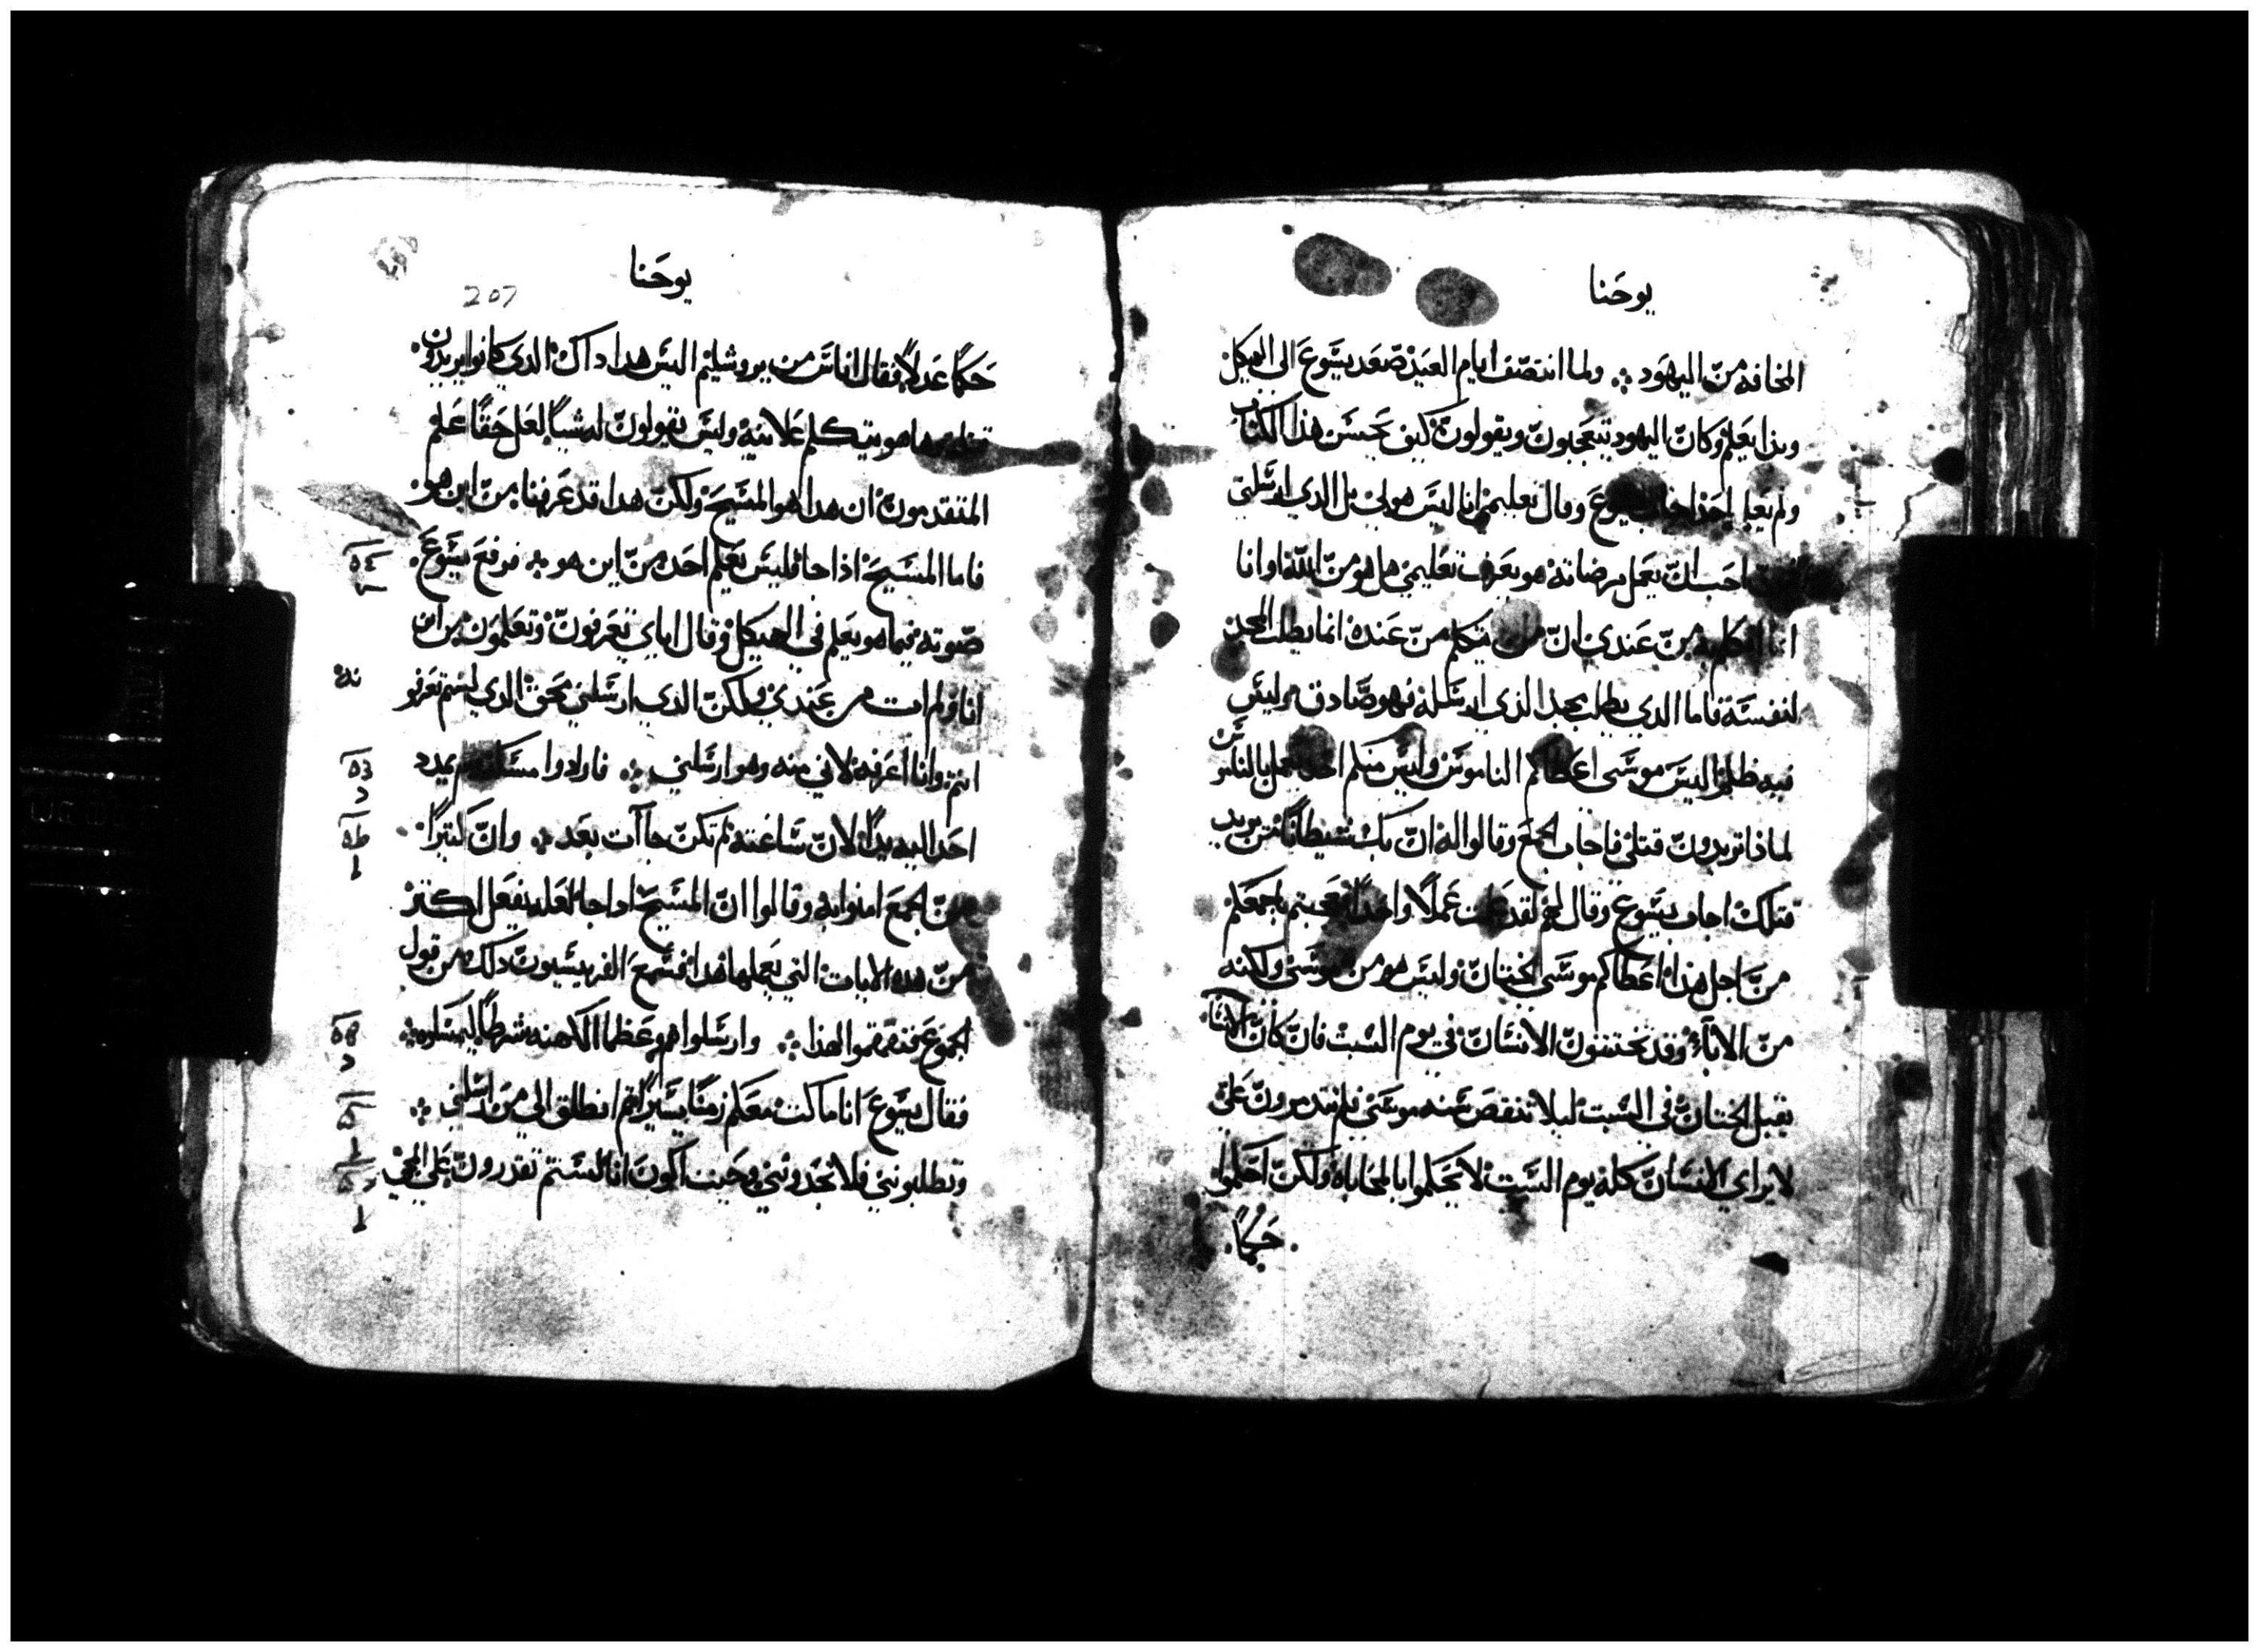 يوحنا
المخافه من اليهود ولما انتصف ايام العيد صعد يسوع الى الهيكل
وبدا يعلم وكان اليهود يتعجبون ويقولون كيف يحسن هذا الكتاب
ولم يعلم احد اجاب يسوع وقال تعليمي انا ليس هو لي بل الدي ارسلني
احب ان يعمل مرضاته هو يعرف تعليمي هل هو من الله او انا
انا اتكلم به من عندي ان من يتكلم من عنده انما يطلب المجد
لنفسه فاما الدي يطلب مجد الذي ارسله فهو صادق وليس
فيه ظلم اليس موسى اعطاكم الناموس وليس منكم احد يعمل بالناموس
لماذا تريدون قتلي فاجاب الجمع وقالوا له ان بك شيطانا من يريد
قتلك اجاب يسوع وقال لهم لقد عملت عملا واحدا فعجبتم باجمعكم
من اجل هذا اعطاكم موسى الختان وليس هو من موسى ولكنه
من الاباء وقد تختنون الانسان في يوم السبت فان كان الانسان
يقبل الختان في السبت ليلا تنقض سنه موسى فلم تتدمرون علي
لابراي الانسان كله يوم السبت لا تحكموا بالمحاباه ولكن احكموا
حكما
يوحنا
207
حكما عدلا فقال اناس من يروشليم اليس هدا داك الدي كانوا يريدون
قتله ها هو يتكلم علانيه وليس يقولون له شيا لعل حقا علم
المتقدمون ان هدا هو المسيح ولكن هدا قد عرفنا من اين هو
فاما المسيح اذا جا فليس يعلم احد من اين هو فرفع يسوع
صوته فيما هو يعلم في الهيكل وقال اياي تعرفون وتعلمون من اين
انا ولم ات من عندي ولكن الدي ارسلني محق الدي لستم تعرفو
انتم وانا اعرفه لاني منه وهو ارسلني فارادوا مسكه ولم يمدد
احد اليه يدا لان ساعته لم تكن جاات بعد وان كتيرا
من الجمع امنوا به وقالوا ان المسيح ادا جا لعله يفعل اكتر
من هده الايات التي يعملها هدا فسمع الفريسيون دلك من قول
الجموع فتقمقموا لهذا وارسلوا هم وعظما الكهنه شرطا ليمسكوه
فقال يسوع انا ماكت معكم زمنا يسيرا تم انطلق الى من ارسلني
وتطلبونني فلا تجدونني وحيت اكون انا لستم تقدرون على المجي